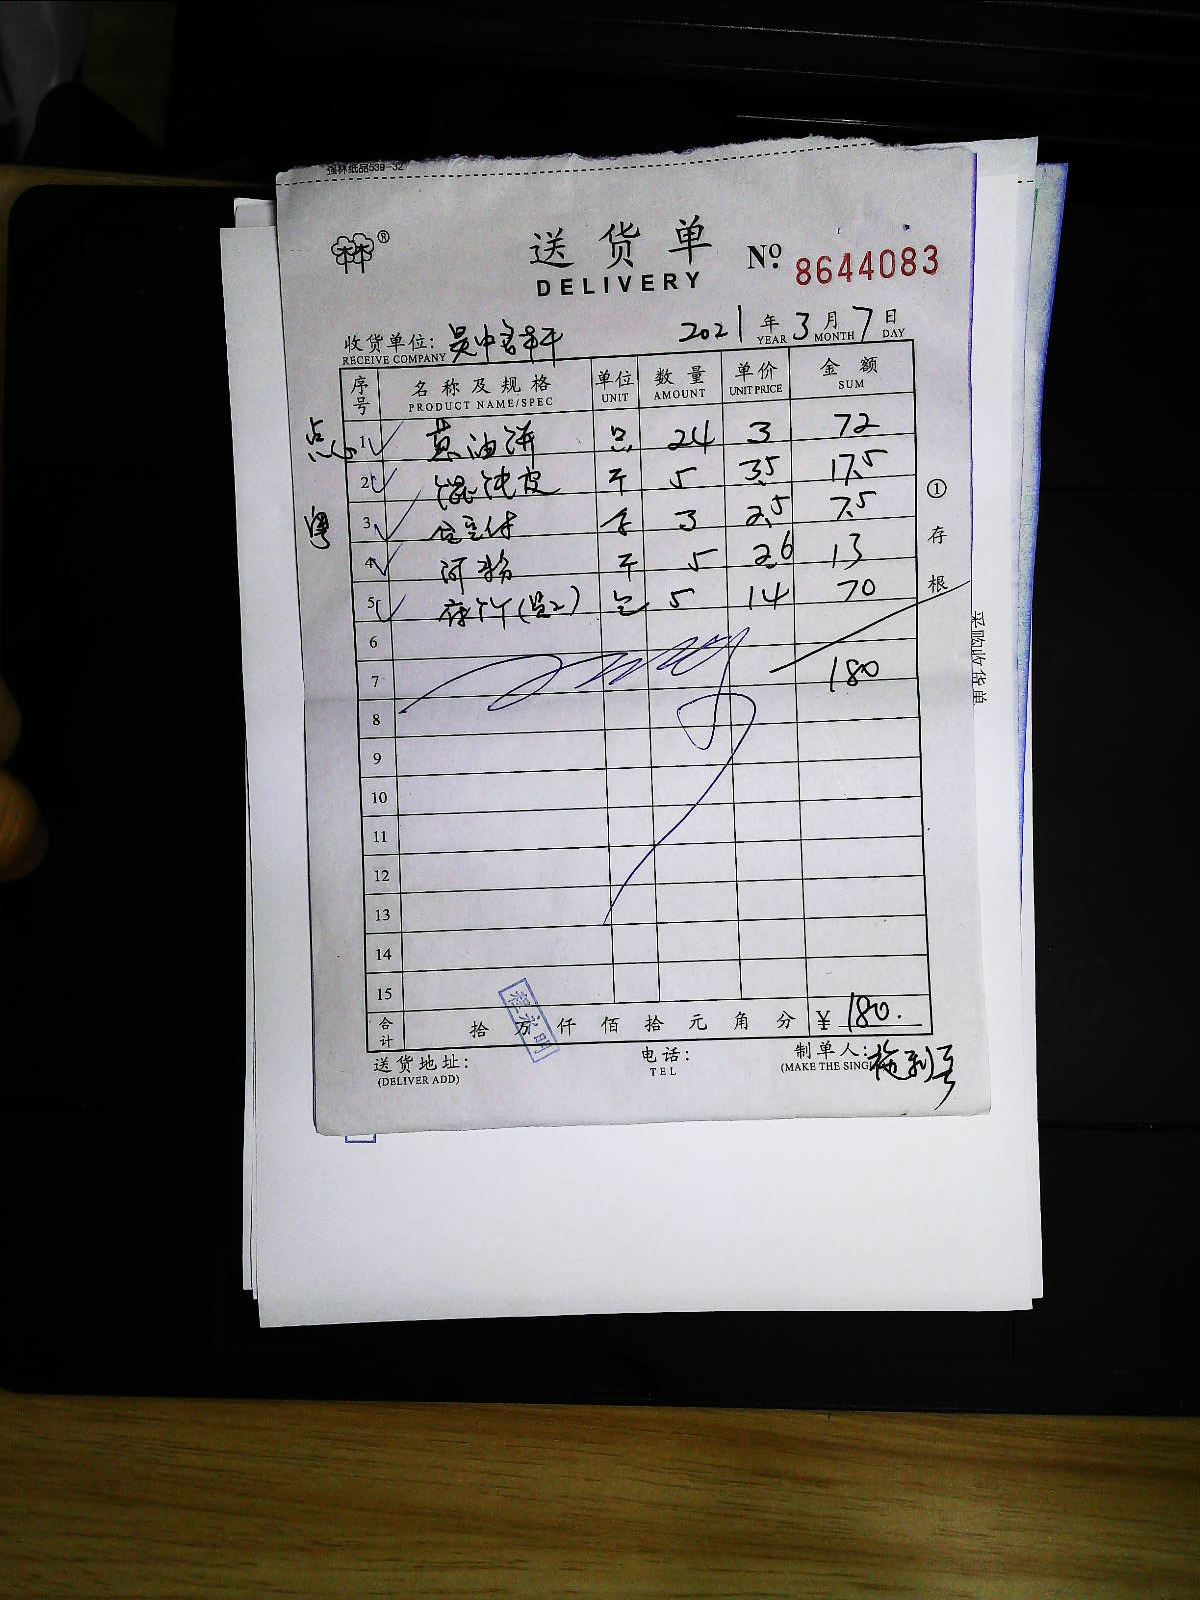 强林纸品539-32
林®
送货单
DELIVERY
No. 8644083
收货单位:
RECEIVE COMPANY
2021年3月7日
YEAR MONTH DAY
序号 名称及规格 单位 数量 单价 金额
PRODUCT NAME/SPEC UNIT AMOUNT UNIT PRICE SUM
点心 1 葱油饼 只 24 3 72
2 馄饨皮 斤 5 3.5 17.5
粤 3 3 2.5 7.5
4 河粉 斤 5 2.6 13
5 腐竹 包 5 14 70
6
7 180
8
9
10
11
12
13
14
15
合计 拾万仟佰拾元角分 ¥180.
程永明
送货地址: 电话: 制单人:
(DELIVER ADD) TEL (MAKE THE SING
①存根
采购收货单